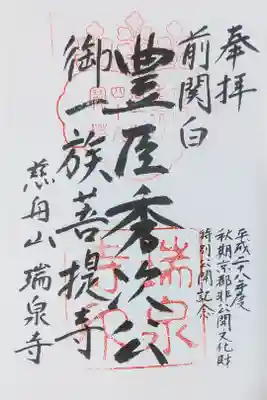 奉拝
前関白
豊臣秀次公
御一族菩提寺
慈舟山 瑞泉寺
平成二十八年度
秋期京都非公開文化財
特別公開記念
瑞泉寺印